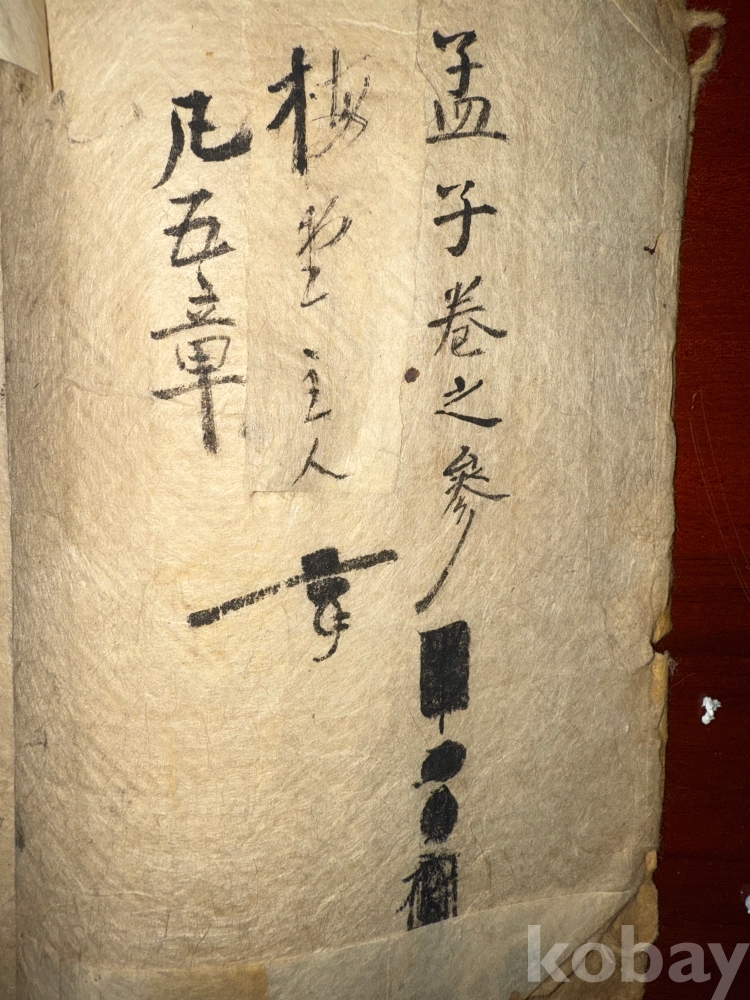 孟子卷之參
梅堂主人
凡五章
kobay